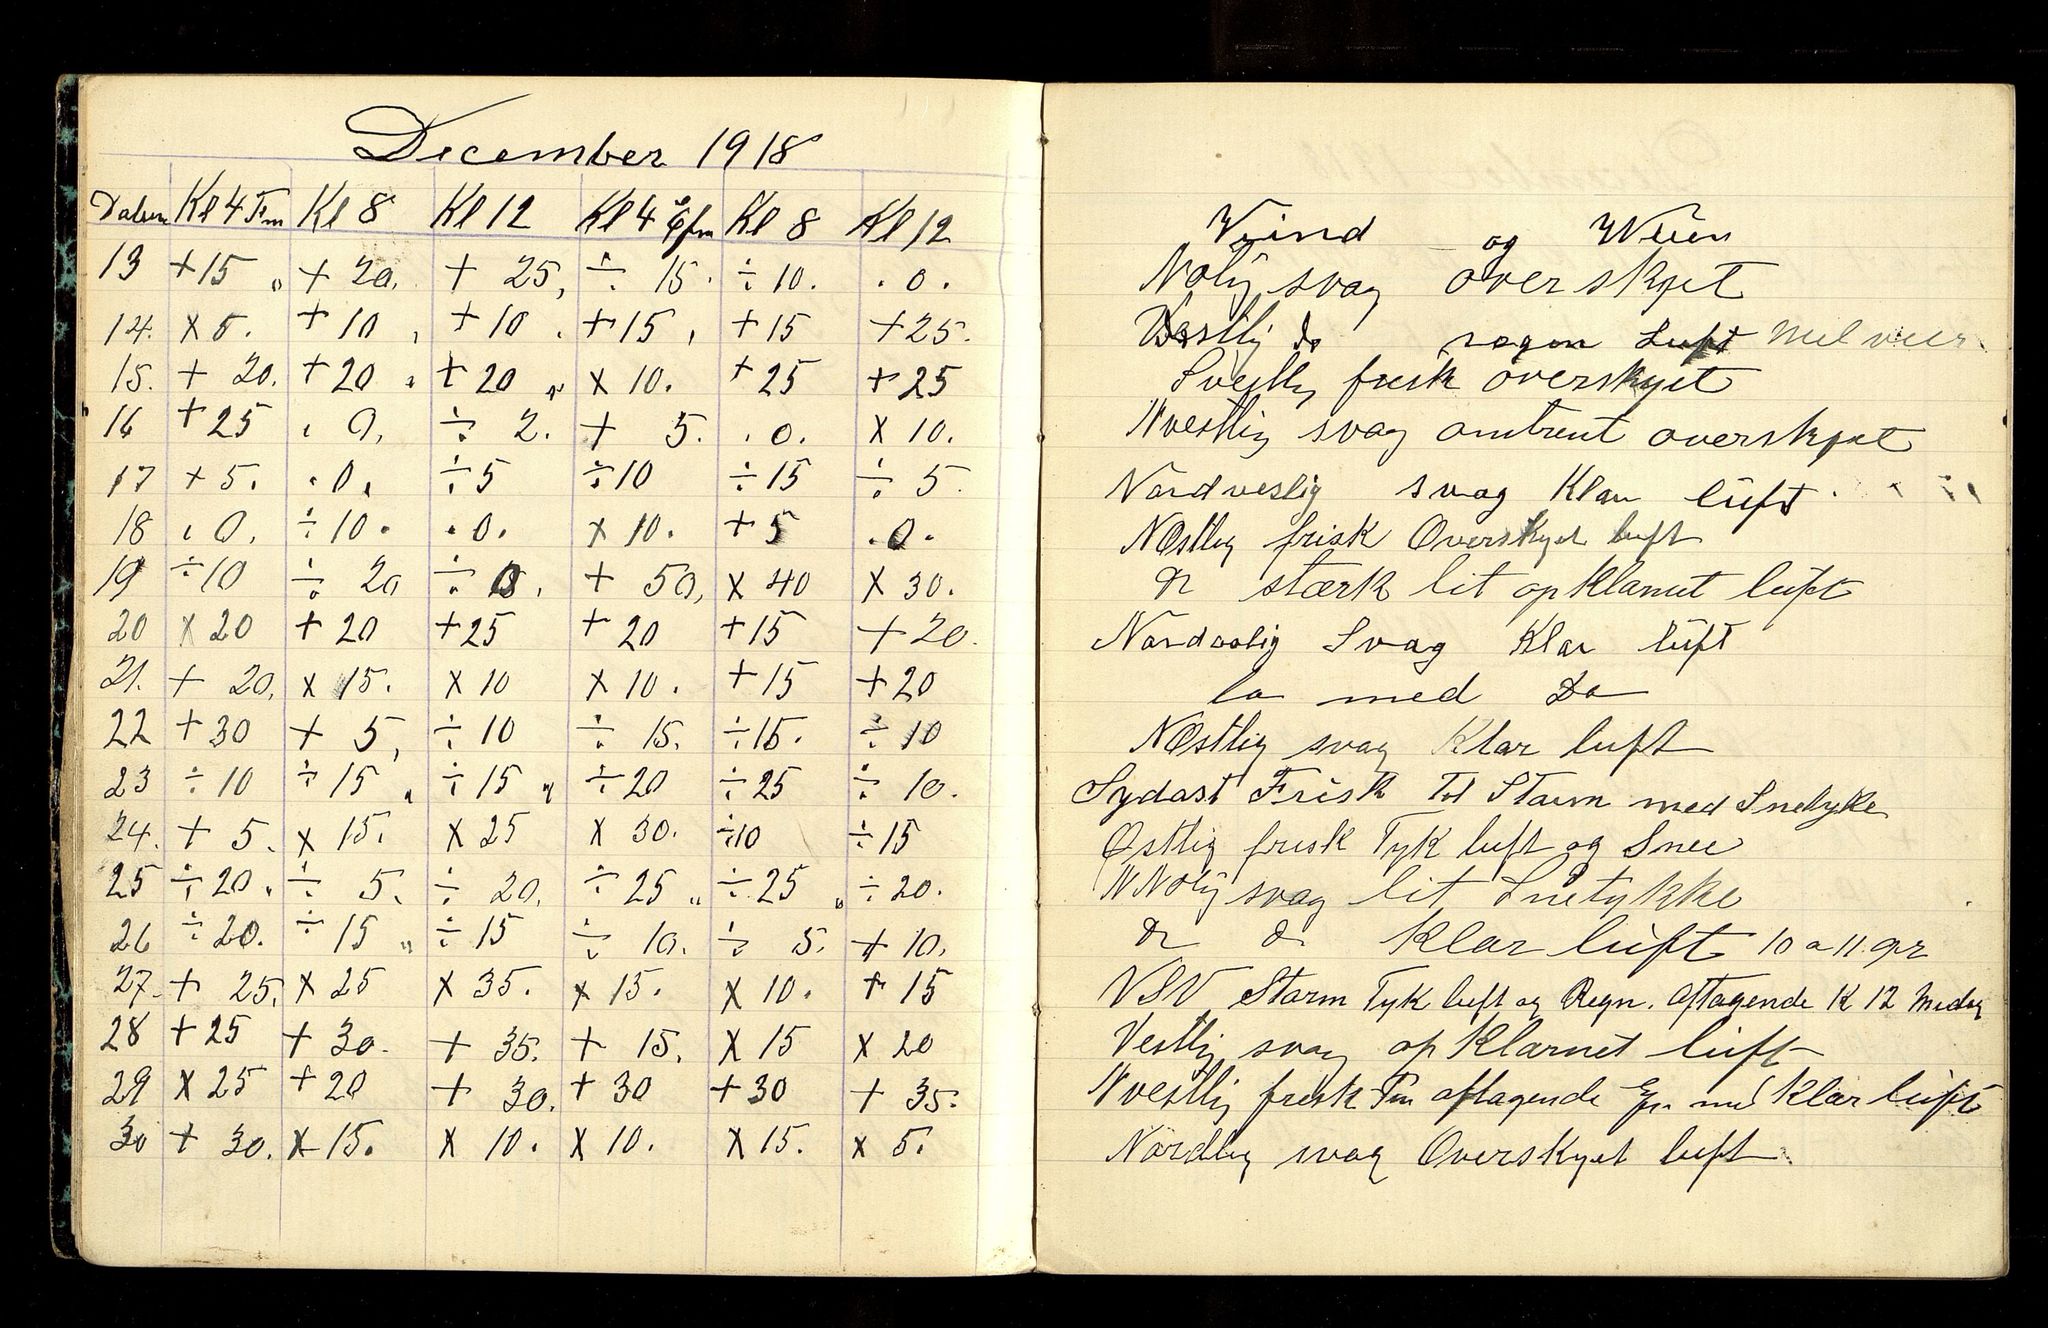 December 1918
Datum Kl 4 Fm Kl 8 Kl 12 Kl 4 Efm Kl 8 Kl 12
13 +15 „ + 20. + 25, ÷ 15. ÷ 10. . 0.
14. x 5. + 10 , + 10 . + 15 , + 15 + 25.
15. + 20. + 20 „ + 20 „ x 10. + 25 + 25
16 + 25 . 0, ÷ 2. + 5. . 0. x 10.
17 + 5. . 0. ÷ 5 ÷ 10 ÷ 15 ÷ 5.
18 . 0. ÷ 10. . 0. x 10. + 5 . 0.
19 ÷ 10 ÷ 20 ÷ + 50, x 40 x 30.
20 x 20 + 20 + 25 + 20 + 15 + 20.
21. + 20, x 15. x 10 x 10. + 15 + 20
22 + 30 + 5, ÷ 10 ÷ 15. ÷ 15. ÷ 10
23 ÷ 10 ÷ 15 „ ÷ 15 „ ÷ 20 ÷ 25 ÷ 10.
24. + 5. x 15. x 25 x 30. ÷ 10 ÷ 15
25 ÷ 20 „ ÷ 5. ÷ 20. ÷ 25 „ ÷ 25 „ ÷ 20.
26 ÷ 20. ÷ 15 „ ÷ 15 ÷ 10. ÷ 5. + 10.
27. + 25. x 25 x 35. x 15. x 10. + 15
28 + 25 + 30. + 35. + 15. x 15 x 20
29 x 25 + 20 + 30. + 30 + 30 + 35.
30 + 30. x 15. x 10. x 10. x 15. x 5.
Vind og Weien
Nolig svag overskyet
Vestlig do Luft
Svestlig frisk overskyet
Nvestlig svag omtrent overskyet
Nordveslig svag Klar luft
NOstlig frisk Overskyet luft
do stærk lit opklarnet luft
Nordoolig Svag Klar luft
med Do
NOstlig svag Klar luft
Sydost Frisk Til Storm med Snetyke
Ostlig frisk Tyk luft og Snee
NNOlig svag lit Snetykke
do do Klar luft 10 a 11 gr
VSV Storm Tyk luft og Regn. Aftagende K 12 Midag
Vestlig svag opklarnet luft
Nvestlig frisk Fm aftagende Efm med Klar luft
Nordlig svag Overskyet luft